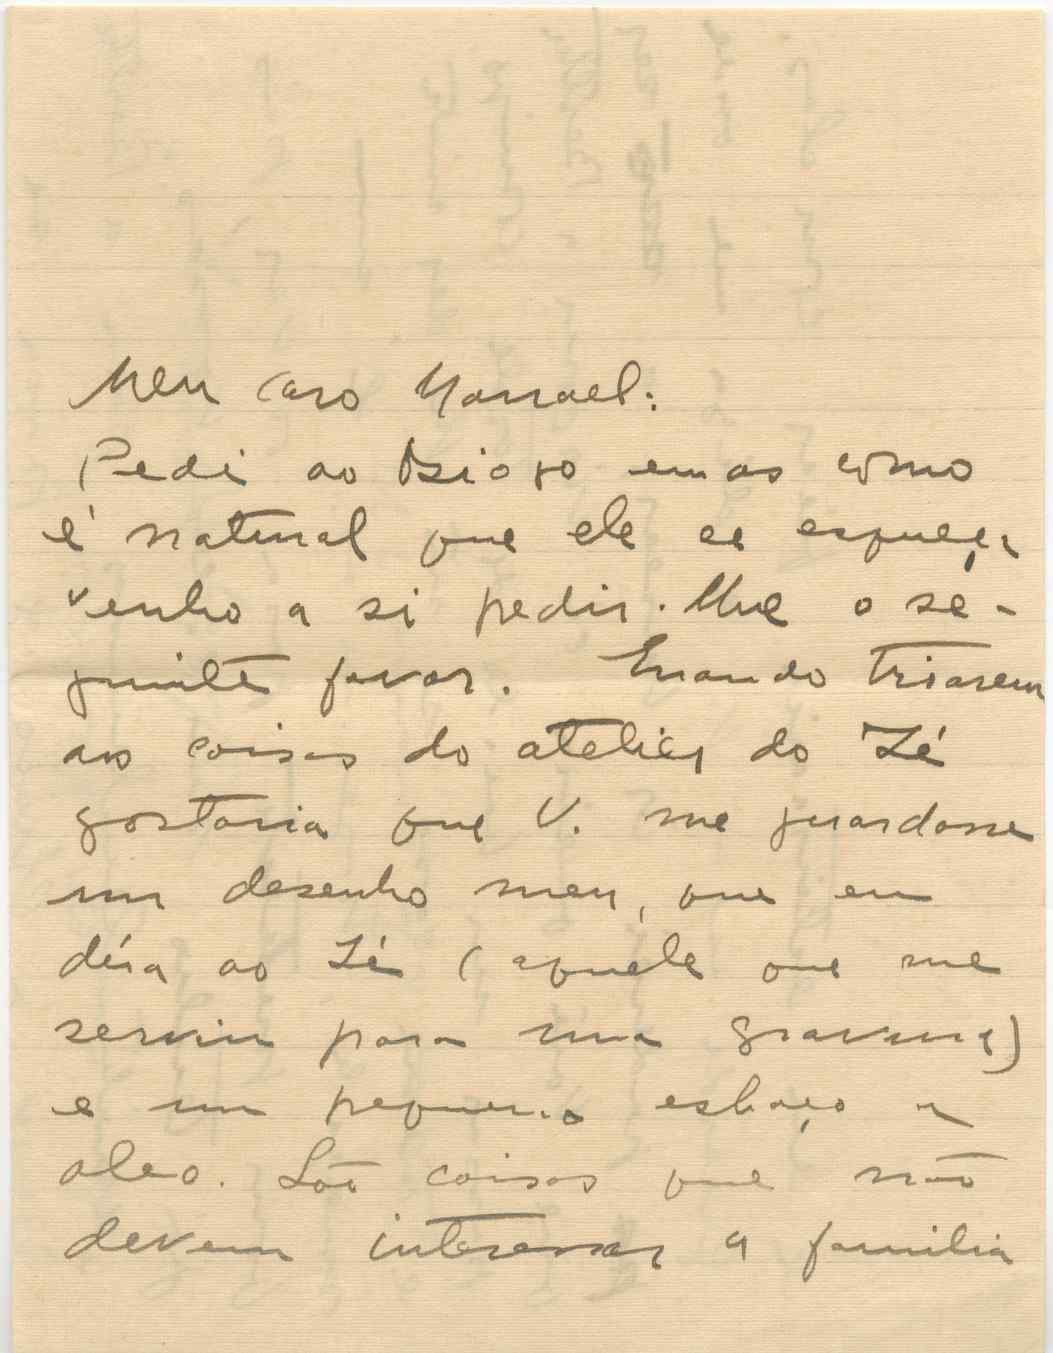 Meu caro Manoel:
Pedi ao Diogo mas como
é natural que ele se esqueça
venho a si pedir-lhe o se-
guinte favor. Quando tirarem
as coisas do atelier do Zé
gostaria que V. me guardasse
um desenho meu, que eu
déra ao Zé (aquele que me
serviu para uma gravura)
e um pequeno esboço a
oleo. São coisas que não
devem interessar a familia